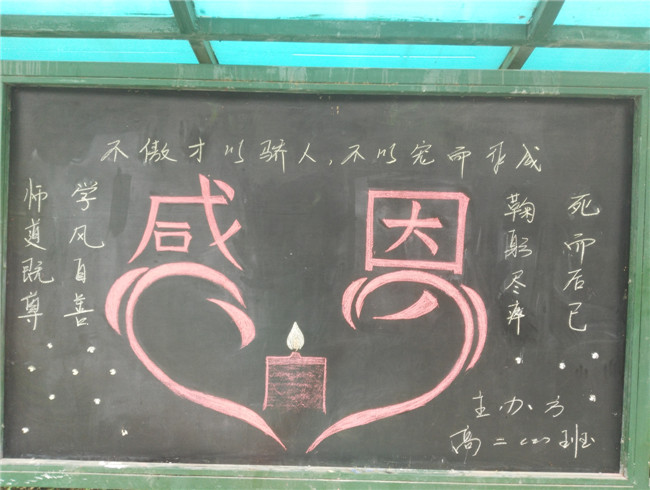 不傲才以骄人,不以宠而
感恩
师既尊
学风自善
鞠躬尽瘁
死而后已
主办方
高二班